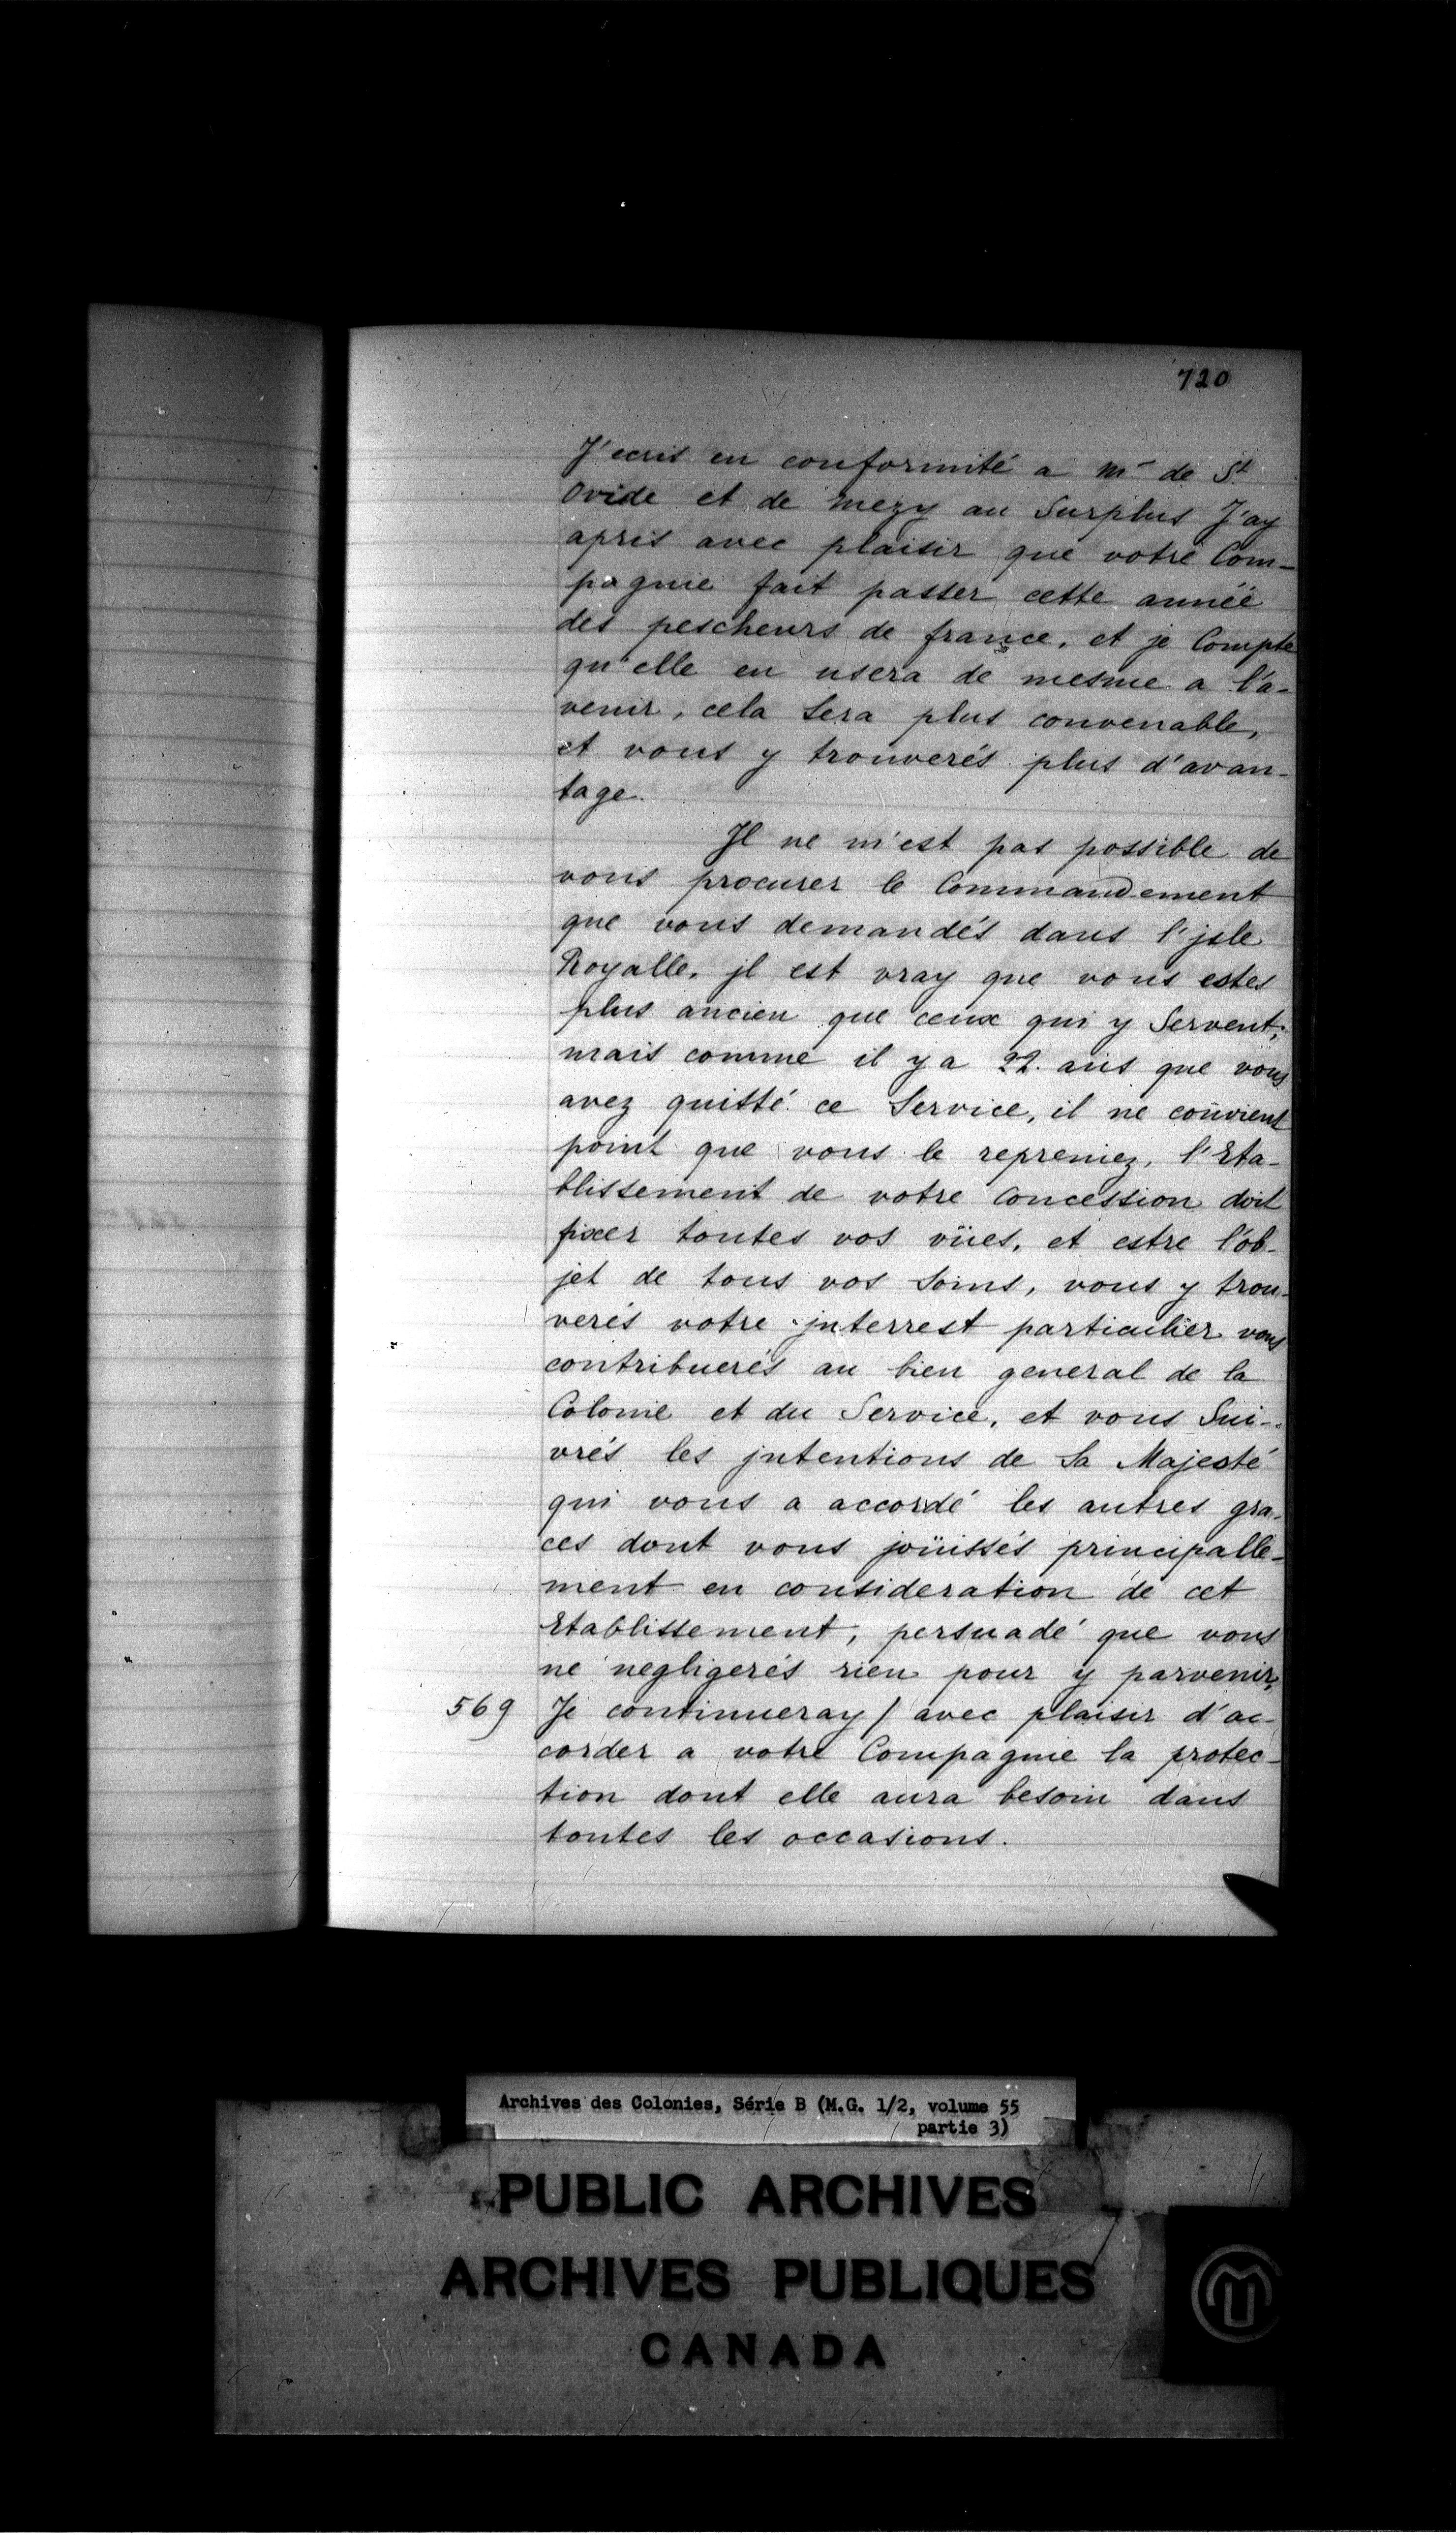 720
J'ecris en conformité a Mr de St
Ovide et de Mezy au Surplus J'ay
apris avec plaisir que votre Com-
pagnie fait passer cette année
des pescheurs de france, et je Compte
qu'elle en usera de mesme a l'a-
venir, cela Sera plus convenable,
et vous y trouverés plus d'avan-
tage.
Jl ne m'est pas possible de
vous procurer le Commandement
que vous demandés dans l'jsle
Royalle, jl est vray que vous estes
plus ancien que ceux qui y Servent,
mais comme il y a 22. ans que vous
avez quitté ce Service, il ne convient
point que vous le repreniez, l'Eta-
blissement de votre Concession doit
fixer toutes vos vües, et estre l'ob-
jet de tous vos Soins, vous y trou-
verés votre jnterrest particulier vous
contribuerés au bien general de la
Colonie et du Service, et vous Sui-
vrés les jntentions de Sa Majesté
qui vous a accordé les autres gra-
ces dont vous joüissés principalle-
ment en consideration de cet
Etablissement, persuadé que vous
ne negligerés rien pour y parvenir,
569 Je continueray / avec plaisir d'ac-
corder a votre Compagnie la protec-
tion dont elle aura besoin dans
toutes les occasions.
Archives des Colonies, Série B (M.G. 1/2, volume 55
partie 3)
PUBLIC ARCHIVES
ARCHIVES PUBLIQUES
CANADA